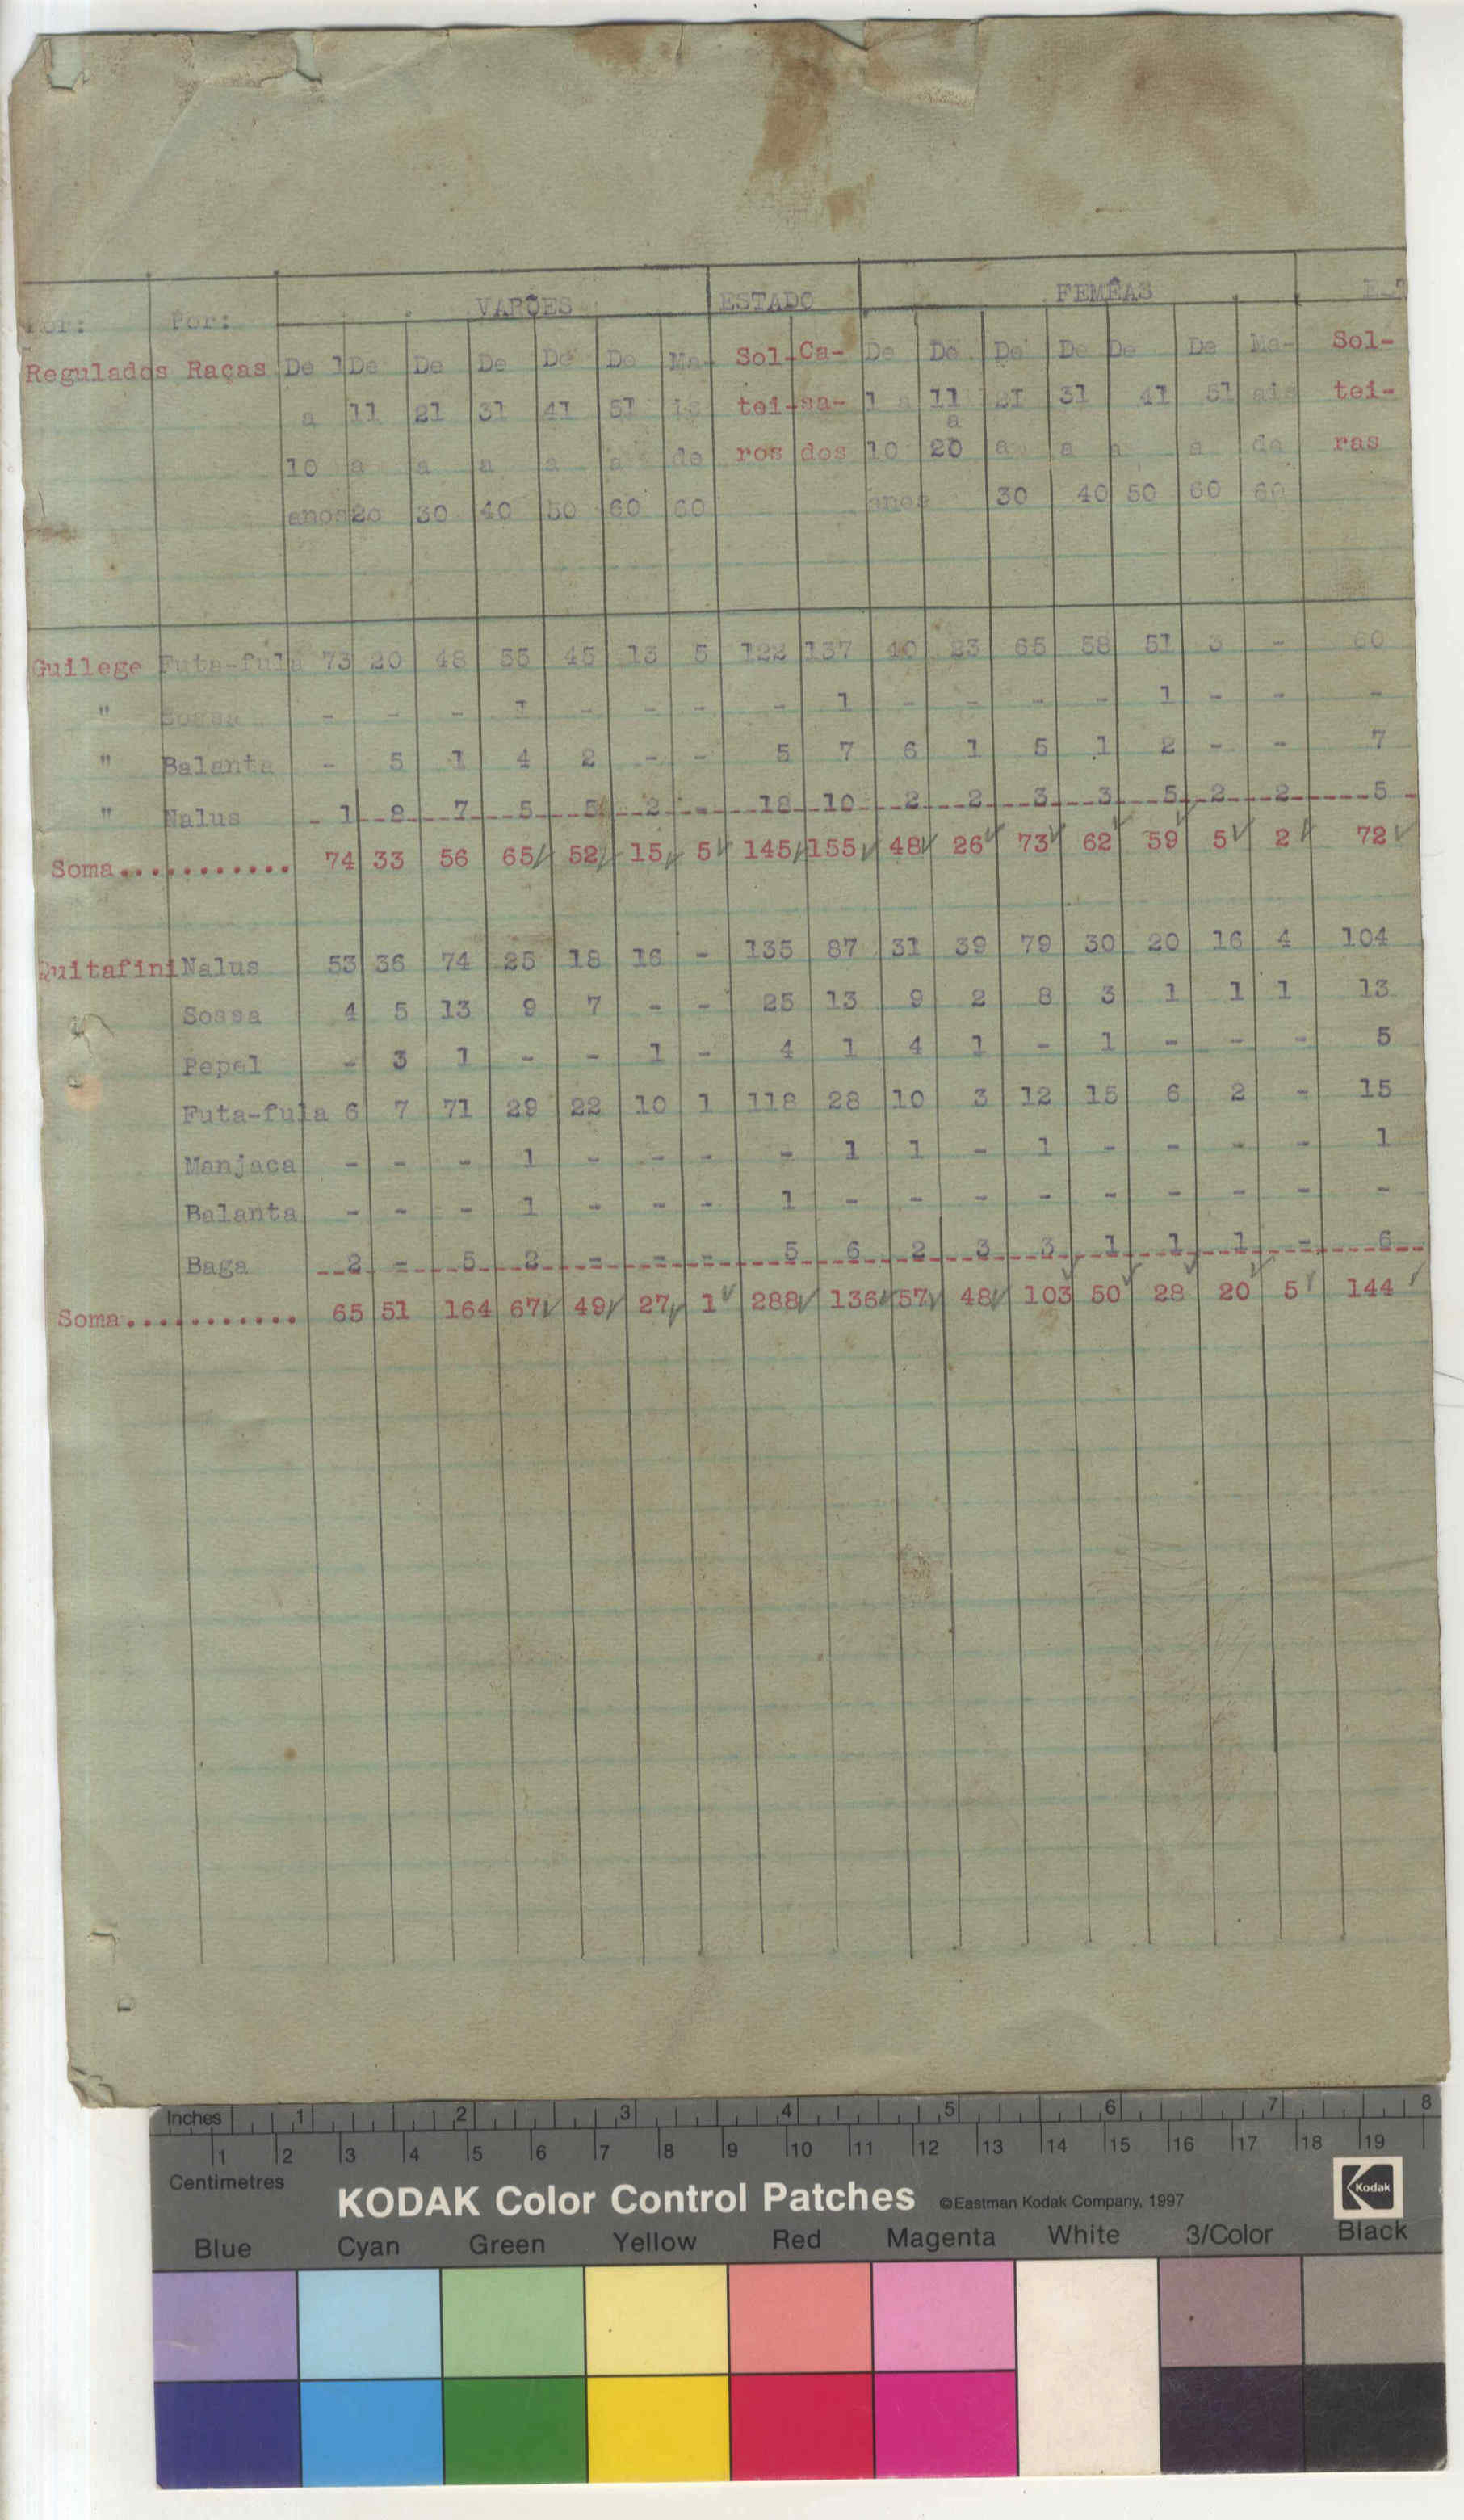 VARÕES ESTADO FEMÊAS
Por: Por:
Regulados Raças De 1 De De De De De Ma- Sol- Ca- De De De De De De Ma- Sol-
a 11 21 31 41 51 is tei- sa- 1 a 11 21 31 41 51 ais tei-
a
10 a a a a a de ros dos 10 20 a a a a de ras
anos 20 30 40 50 60 60 anos 30 40 50 60 60
Guilege Futa-fula 73 20 48 55 45 13 5 122 137 40 23 65 58 51 3 - 60
" Sossa - - - 1 - - - - 1 - - - - 1 - - -
" Balanta - 5 1 4 2 - - 5 7 6 1 5 1 2 - - 7
" Nalus 1 8 7 5 5 2 - 18 10 2 2 3 3 5 2 2 5
Soma........... 74 33 56 65 52 15 5 145 155 48 26 73 62 59 5 2 72
Quitafini Nalus 53 36 74 25 18 16 - 135 87 31 39 79 30 20 16 4 104
Sossa 4 5 13 9 7 - - 25 13 9 2 8 3 1 1 1 13
Pepel - 3 1 - - 1 - 4 1 4 1 - 1 - - - 5
Futa-fula 6 7 71 29 22 10 1 118 28 10 3 12 15 6 2 - 15
Manjaca - - - 1 - - - - 1 1 - 1 - - - - 1
Balanta - - - 1 - - - 1 - - - - - - - - -
Baga 2 - 5 2 - - - 5 6 2 3 3 1 1 1 - 6
Soma........... 65 51 164 67 49 27 1 288 136 57 48 103 50 28 20 5 144
Inches 1 2 3 4 5 6 7 8
1 2 3 4 5 6 7 8 9 10 11 12 13 14 15 16 17 18 19
Centimetres
KODAK Color Control Patches ©Eastman Kodak Company, 1997 Kodak
Blue Cyan Green Yellow Red Magenta White 3/Color Black